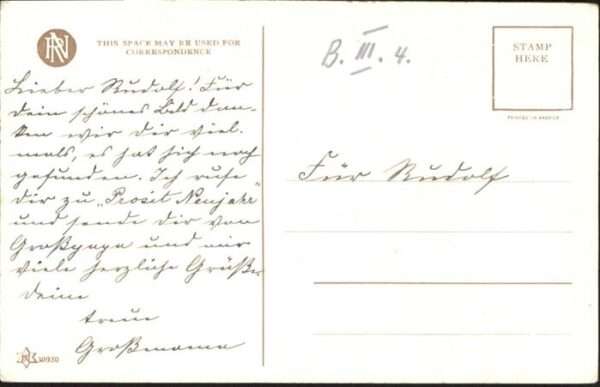 THIS SPACE MAY BE USED FOR
CORRESPONDENCE
B. III. 4.
STAMP
HERE
PRINTED IN BAVARIA
Lieber Rudolf! Für
Dein schönes Bild dan-
ken wir Dir viel-
mals, es hat sich noch
gefunden. Ich rufe
Dir zu „Prosit Neujahr“
und sende Dir von
Großpapa und mir
viele herzliche Grüße
Deine
treue
Großmama
Für Rudolf
30930